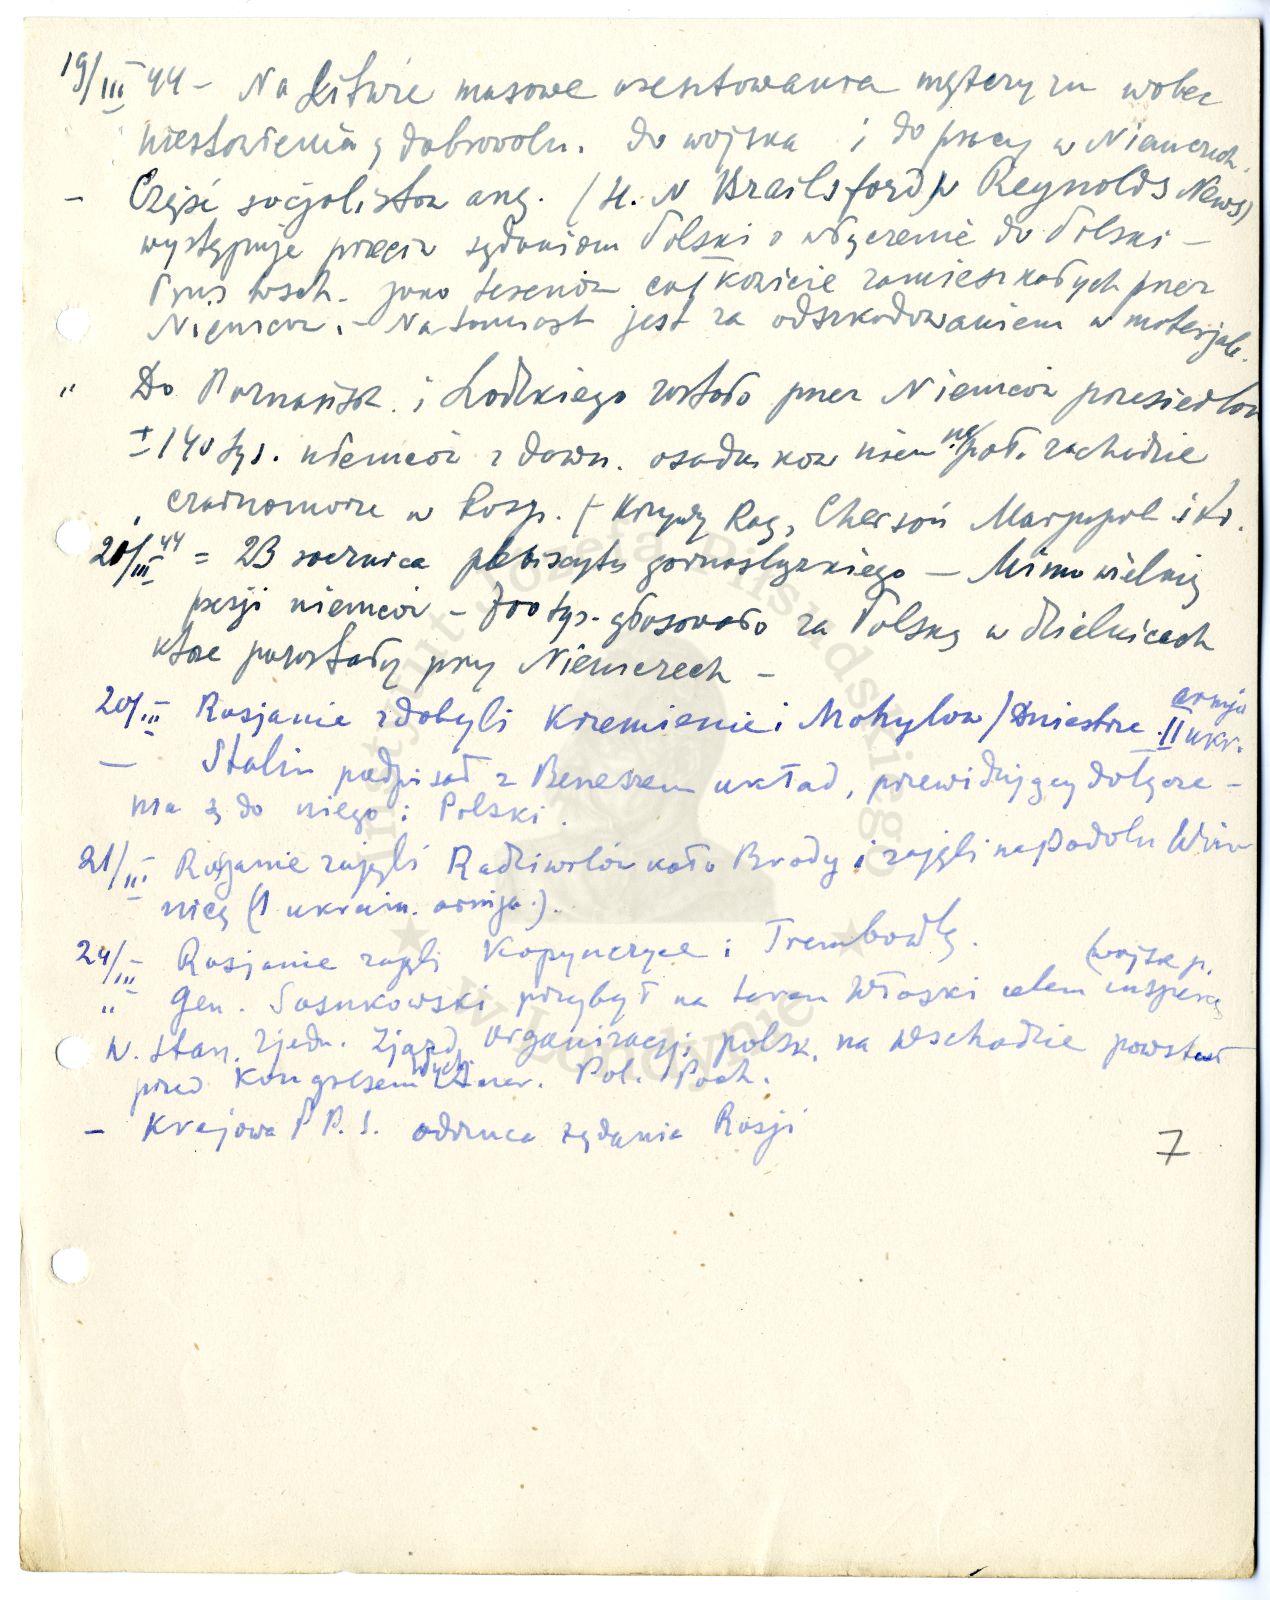 19/III 44 – Na Litwie masowe aresztowania mężczyzn wobec
niestawienia ę dobrowoln. do wojska i do pracy w Niemczech.
– Część socjalistów ang. (H. N Brailsford w Reynolds News)
występuje przeciw żądaniom Polski o włączenie do Polski –
Prus wsch. jako terenów całkowicie zamieszkałych przez
Niemców. – Natomiast jest za odszkodowaniem w materjale.
" Do Poznańsk. i Łódzkiego zostało przez Niemców przesiedlon
± 140 tys. niemców z dawn. osadników niem na połt. zachodzie
czarnomorze w Rosji. (Krzywy Rog, Cherson Marjupol i t.d.
20/III 44 = 23 rocznica plebiscytu gornoslązkiego – Mimo wielkiej
presji niemców – 700 tys. głosowało za Polską w dzielnicach
ktore pozostały przy Niemczech –
20/III Rosjanie zdobyli Kremieniec i Mohylow /Dniestrze armja
II ukr.
– Stalin podpisał z Beneszem układ, przewidujący dołącze-
nia ę do niego i Polski.
21/III Rosjanie zajęli Radziwilów koło Brody i zajęli na Podolu Win
nicę (1 ukrain. armja.).
24/III Rosjanie zajęli Kopynczyce i Trembowlę.
" Gen. Sosnkowski przybył na teren Włoski celem inspekcji (wojsk p.
W. Stan. Zjedn. Zjazd organizacji polsk. na wschodzie powstał
przed Kongresem wych. Amer. Pol. Poch.
– Krajowa P P. S. odrzuca żądania Rosji
7
Instytut Józefa Piłsudskiego
★ w Londynie ★